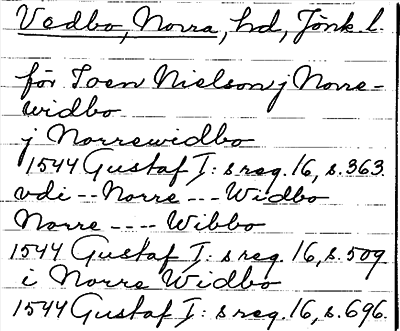 Vedbo, Norra, hd, Jönk. l.
för Joen Nielson j Norre-
widbo
j Norrewidbo
1544 Gustaf I: s reg. 16, s. 363.
vdi -- Norre --- Widbo
Norre ---- Wibbo
1544 Gustaf I: s reg. 16, s. 509
i Norre Widbo
1544 Gustaf I: s reg. 16, s. 696.